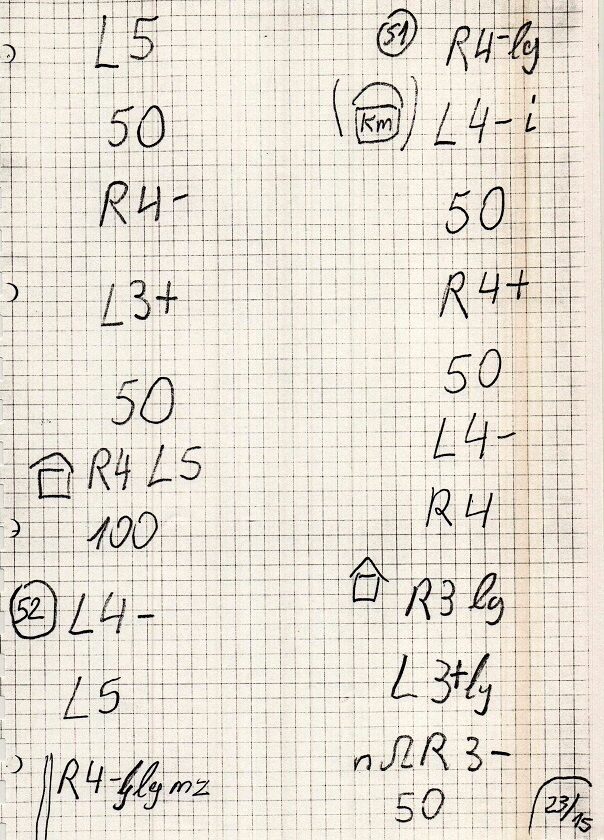 L5
50
R4-
L3+
50
R4 L5
100
52 L4-
L5
R4- lg mz
51 R4-lg
(Km) L4-i
50
R4+
50
L4-
R4
R3 lg
L3+lg
n Ω R3-
50
23/15